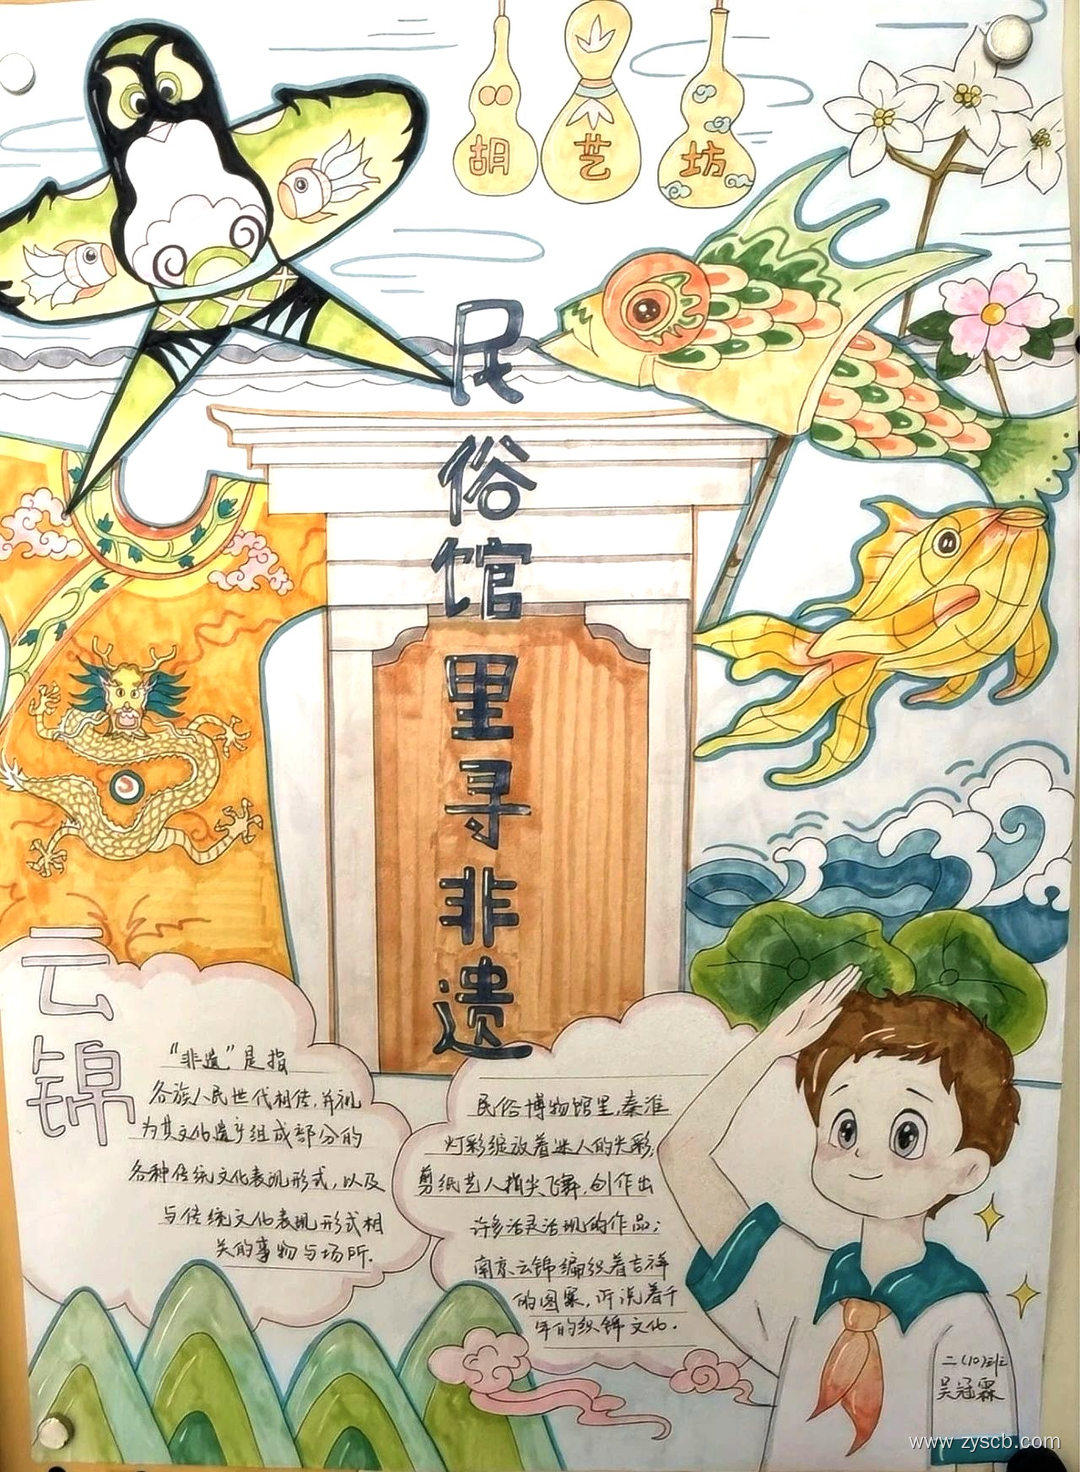 胡艺坊
民俗馆里寻非遗
云锦
“非遗”是指
各族人民世代相传,并视
为其文化遗产组成部分的
各种传统文化表现形式,以及
与传统文化表现形式相
关的事物与场所.
民俗博物馆里,秦淮
灯彩绽放着迷人的光彩;
剪纸艺人指尖飞舞,创作出
许多活灵活现的作品;
南京云锦编织着吉祥
的图案,诉说着千
年的织锦文化.
二(10)班
吴冠霖
www.zyscb.com